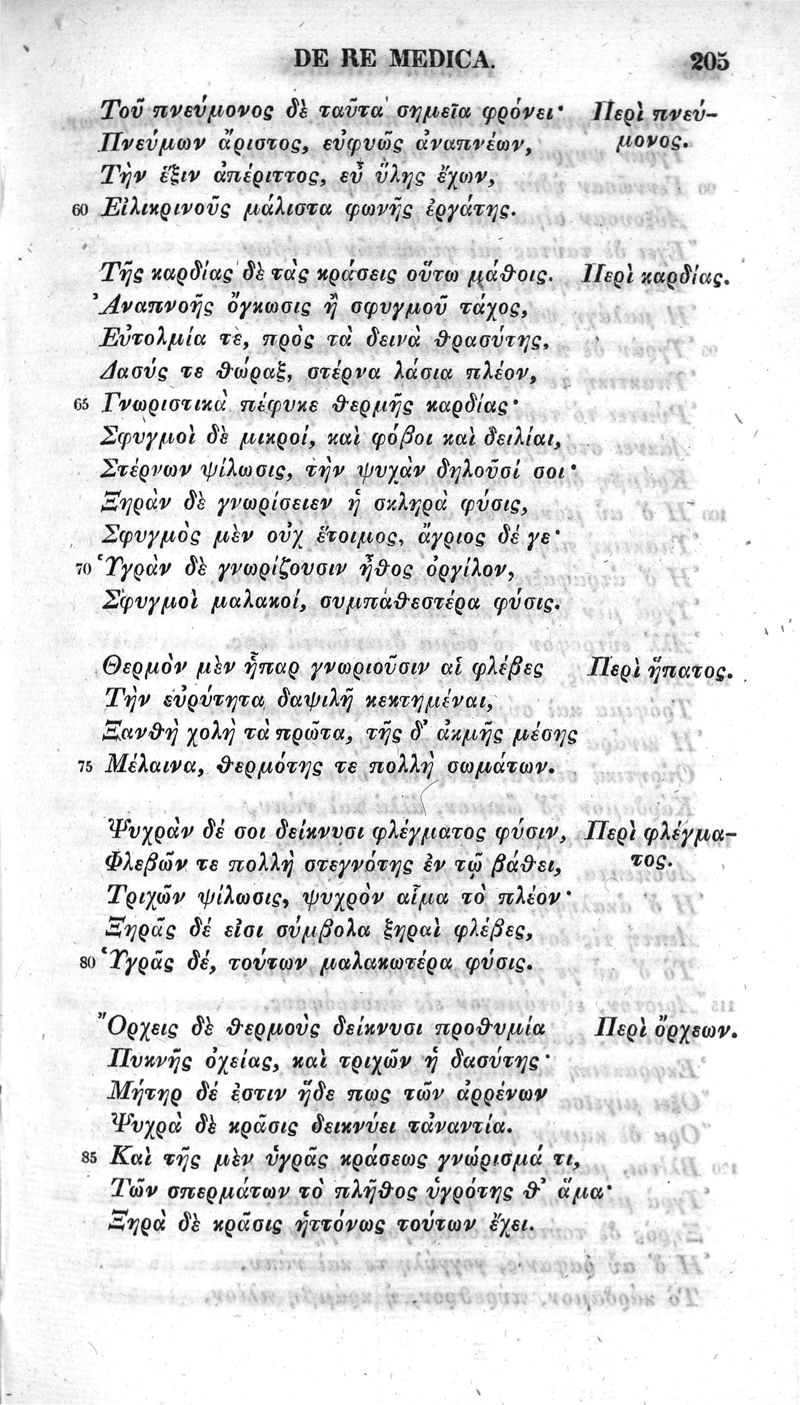 DE RE MEDICA. 205
Τοῦ πνεύμονος δὲ ταῦτα σημεῖα φρόνει· Περὶ πνεύ-
Πνεύμων ἄριστος, εὐφυῶς ἀναπνέων, μονος.
Τὴν ἕξιν ἀπέριττος, εὖ ὕλης ἔχων,
60 Εἰλικρινοῦς μάλιστα φωνῆς ἐργάτης.
Τῆς καρδίας δὲ τὰς κράσεις οὕτω μάθοις. Περὶ καρδίας.
Ἀναπνοῆς ὄγκωσις ἢ σφυγμοῦ τάχος,
Εὐτολμία τὲ, πρὸς τὰ δεινὰ θρασύτης,
Δασύς τε θώραξ, στέρνα λάσια πλέον,
65 Γνωριστικὰ πέφυκε θερμῆς καρδίας·
Σφυγμοὶ δὲ μικροί, καὶ φόβοι καὶ δειλίαι,
Στέρνων ψίλωσις, τὴν ψυχὰν δηλοῦσί σοι·
Ξηρὰν δὲ γνωρίσειεν ἡ σκληρὰ φύσις,
Σφυγμὸς μὲν οὐχ ἕτοιμος, ἄγριος δέ γε·
70 Ὑγρὰν δὲ γνωρίζουσιν ἦθος ὀργίλον,
Σφυγμοὶ μαλακοί, συμπαθεστέρα φύσις.
Θερμὸν μὲν ἧπαρ γνωριοῦσιν αἱ φλέβες Περὶ ἥπατος.
Τὴν εὐρύτητα δαψιλῆ κεκτημέναι,
Ξανθὴ χολὴ τὰ πρῶτα, τῆς δ' ἀκμῆς μέσης
75 Μέλαινα, θερμότης τε πολλὴ σωμάτων.
Ψυχρὰν δέ σοι δείκνυσι φλέγματος φύσιν, Περὶ φλέγμα-
Φλεβῶν τε πολλὴ στεγνότης ἐν τῷ βάθει, τος.
Τριχῶν ψίλωσις, ψυχρὸν αἷμα τὸ πλέον·
Ξηρᾶς δέ εἰσι σύμβολα ξηραὶ φλέβες,
80 Ὑγρᾶς δέ, τούτων μαλακωτέρα φύσις.
Ὄρχεις δὲ θερμοὺς δείκνυσι προθυμία Περὶ ὄρχεων.
Πυκνῆς ὀχείας, καὶ τριχῶν ἡ δασύτης·
Μήτηρ δέ ἐστιν ἥδε πως τῶν ἀρρένων
Ψυχρὰ δὲ κρᾶσις δεικνύει τἀναντία.
85 Καὶ τῆς μὲν ὑγρᾶς κράσεως γνώρισμά τι,
Τῶν σπερμάτων τὸ πλῆθος ὑγρότης θ' ἅμα·
Ξηρὰ δὲ κρᾶσις ἡττόνως τούτων ἔχει.